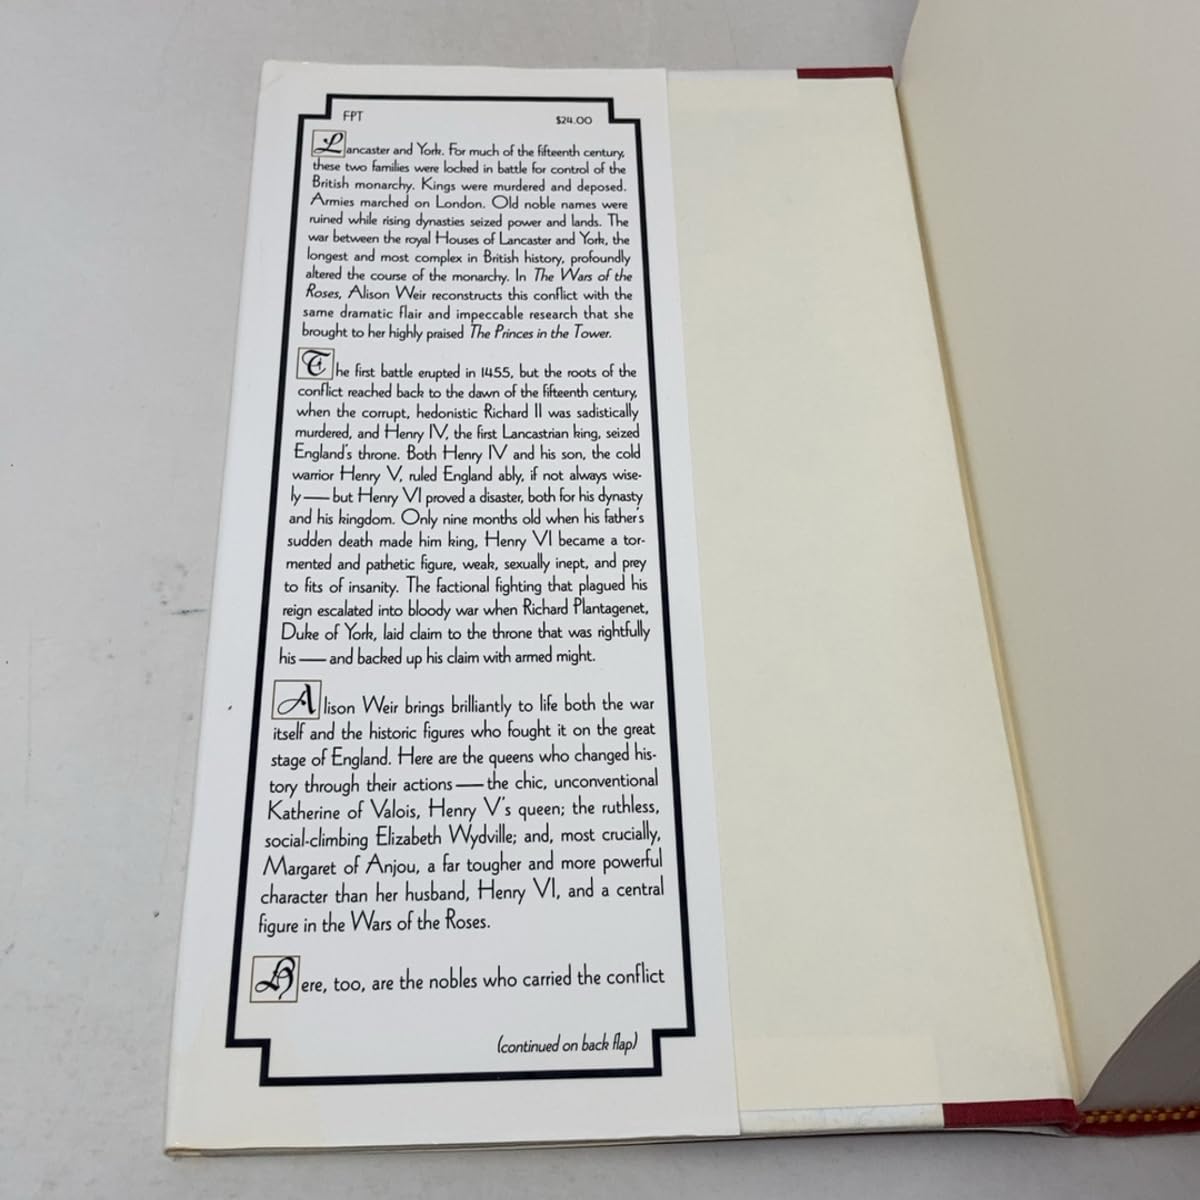 FPT $24.00
Lancaster and York. For much of the fifteenth century,
these two families were locked in battle for control of the
British monarchy. Kings were murdered and deposed.
Armies marched on London. Old noble names were
ruined while rising dynasties seized power and lands. The
war between the royal Houses of Lancaster and York, the
longest and most complex in British history, profoundly
altered the course of the monarchy. In The Wars of the
Roses, Alison Weir reconstructs this conflict with the
same dramatic flair and impeccable research that she
brought to her highly praised The Princes in the Tower.
The first battle erupted in 1455, but the roots of the
conflict reached back to the dawn of the fifteenth century,
when the corrupt, hedonistic Richard II was sadistically
murdered, and Henry IV, the first Lancastrian king, seized
England's throne. Both Henry IV and his son, the cold
warrior Henry V, ruled England ably, if not always wise-
ly—but Henry VI proved a disaster, both for his dynasty
and his kingdom. Only nine months old when his father's
sudden death made him king, Henry VI became a tor-
mented and pathetic figure, weak, sexually inept, and prey
to fits of insanity. The factional fighting that plagued his
reign escalated into bloody war when Richard Plantagenet,
Duke of York, laid claim to the throne that was rightfully
his—and backed up his claim with armed might.
Alison Weir brings brilliantly to life both the war
itself and the historic figures who fought it on the great
stage of England. Here are the queens who changed his-
tory through their actions—the chic, unconventional
Katherine of Valois, Henry V's queen; the ruthless,
social-climbing Elizabeth Wydville; and, most crucially,
Margaret of Anjou, a far tougher and more powerful
character than her husband, Henry VI, and a central
figure in the Wars of the Roses.
Here, too, are the nobles who carried the conflict
(continued on back flap)